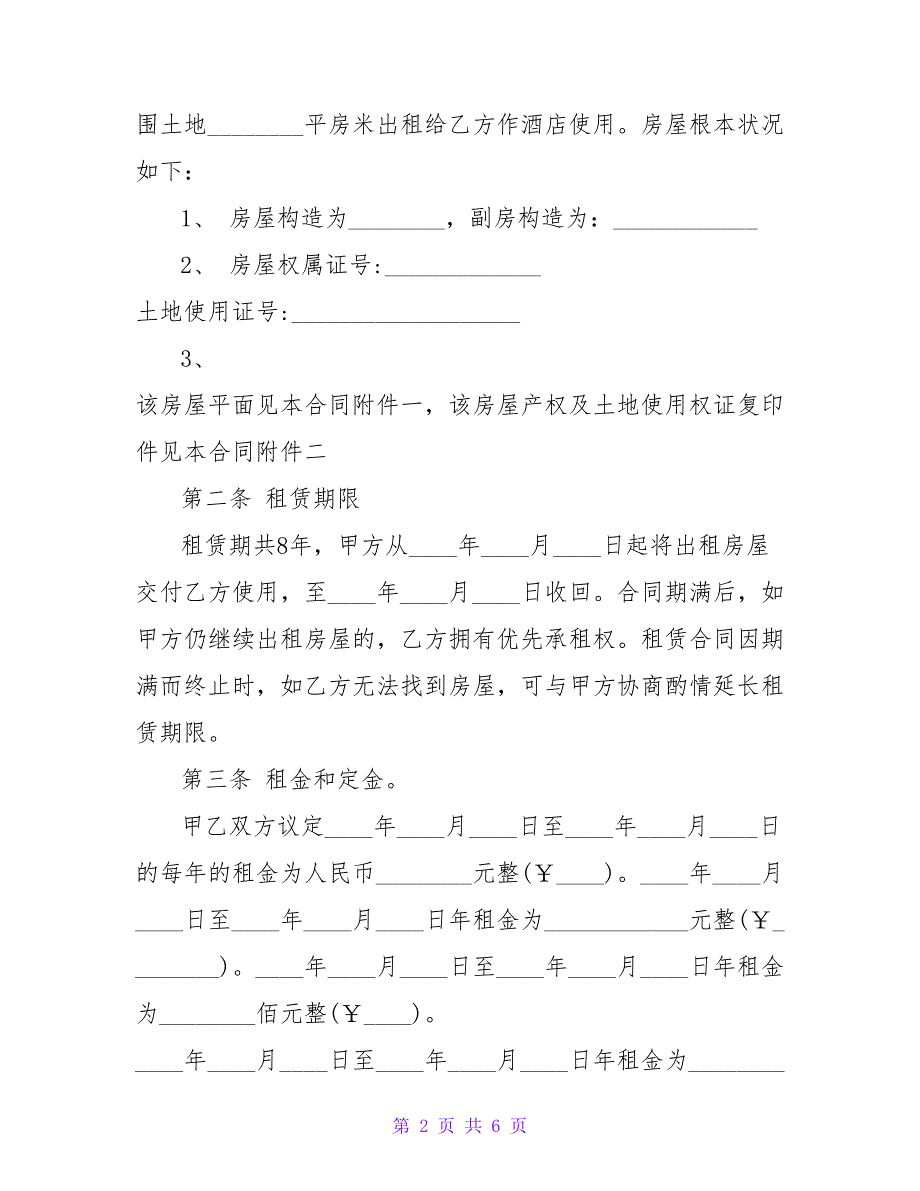 围土地________平房米出租给乙方作酒店使用。房屋根本状况
如下：
1、 房屋构造为________，副房构造为：____________
2、 房屋权属证号:_____________
土地使用证号:___________________
3、
该房屋平面见本合同附件一，该房屋产权及土地使用权证复印
件见本合同附件二
第二条 租赁期限
租赁期共8年，甲方从____年____月____日起将出租房屋
交付乙方使用，至____年____月____日收回。合同期满后，如
甲方仍继续出租房屋的，乙方拥有优先承租权。租赁合同因期
满而终止时，如乙方无法找到房屋，可与甲方协商酌情延长租
赁期限。
第三条 租金和定金。
甲乙双方议定____年____月____日至____年____月____日
的每年的租金为人民币________元整(￥____)。____年____月
____日至____年____月____日年租金为____________元整(￥_
_______)。____年____月____日至____年____月____日年租金
为________佰元整(￥____)。
____年____月____日至____年____月____日年租金为________
第 2 页 共 6 页